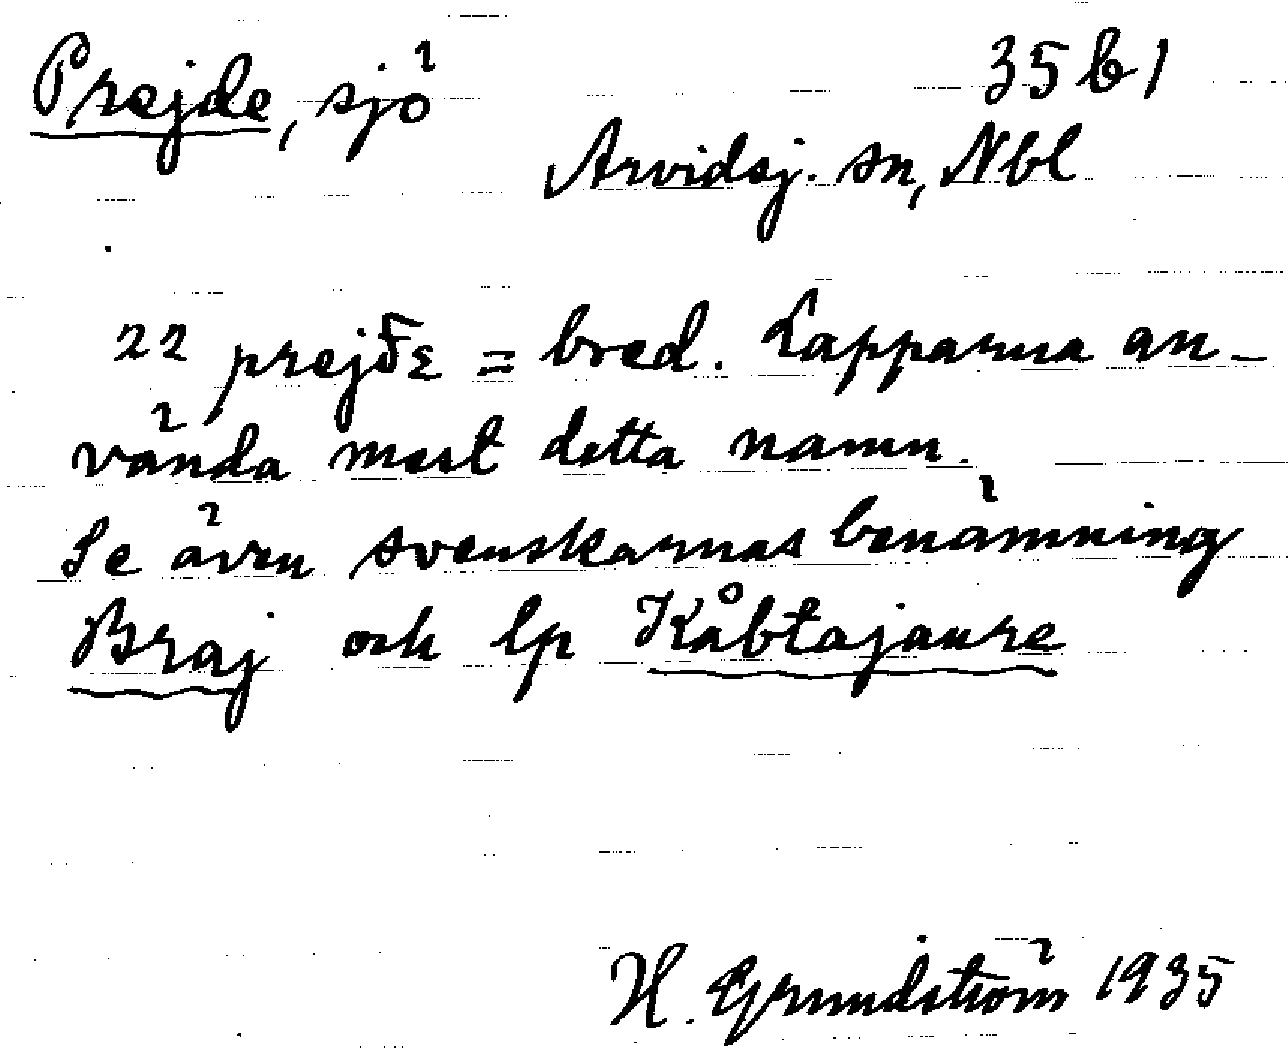 Prejde, sjö 35 b 1
Arvidsj. sn, Nbl
22 prejδε = bred. Lapparna an-
vända mest detta namn.
Se även svenskarnas benämning
Braj och lp Kåbtajaure
H. Grundström 1935